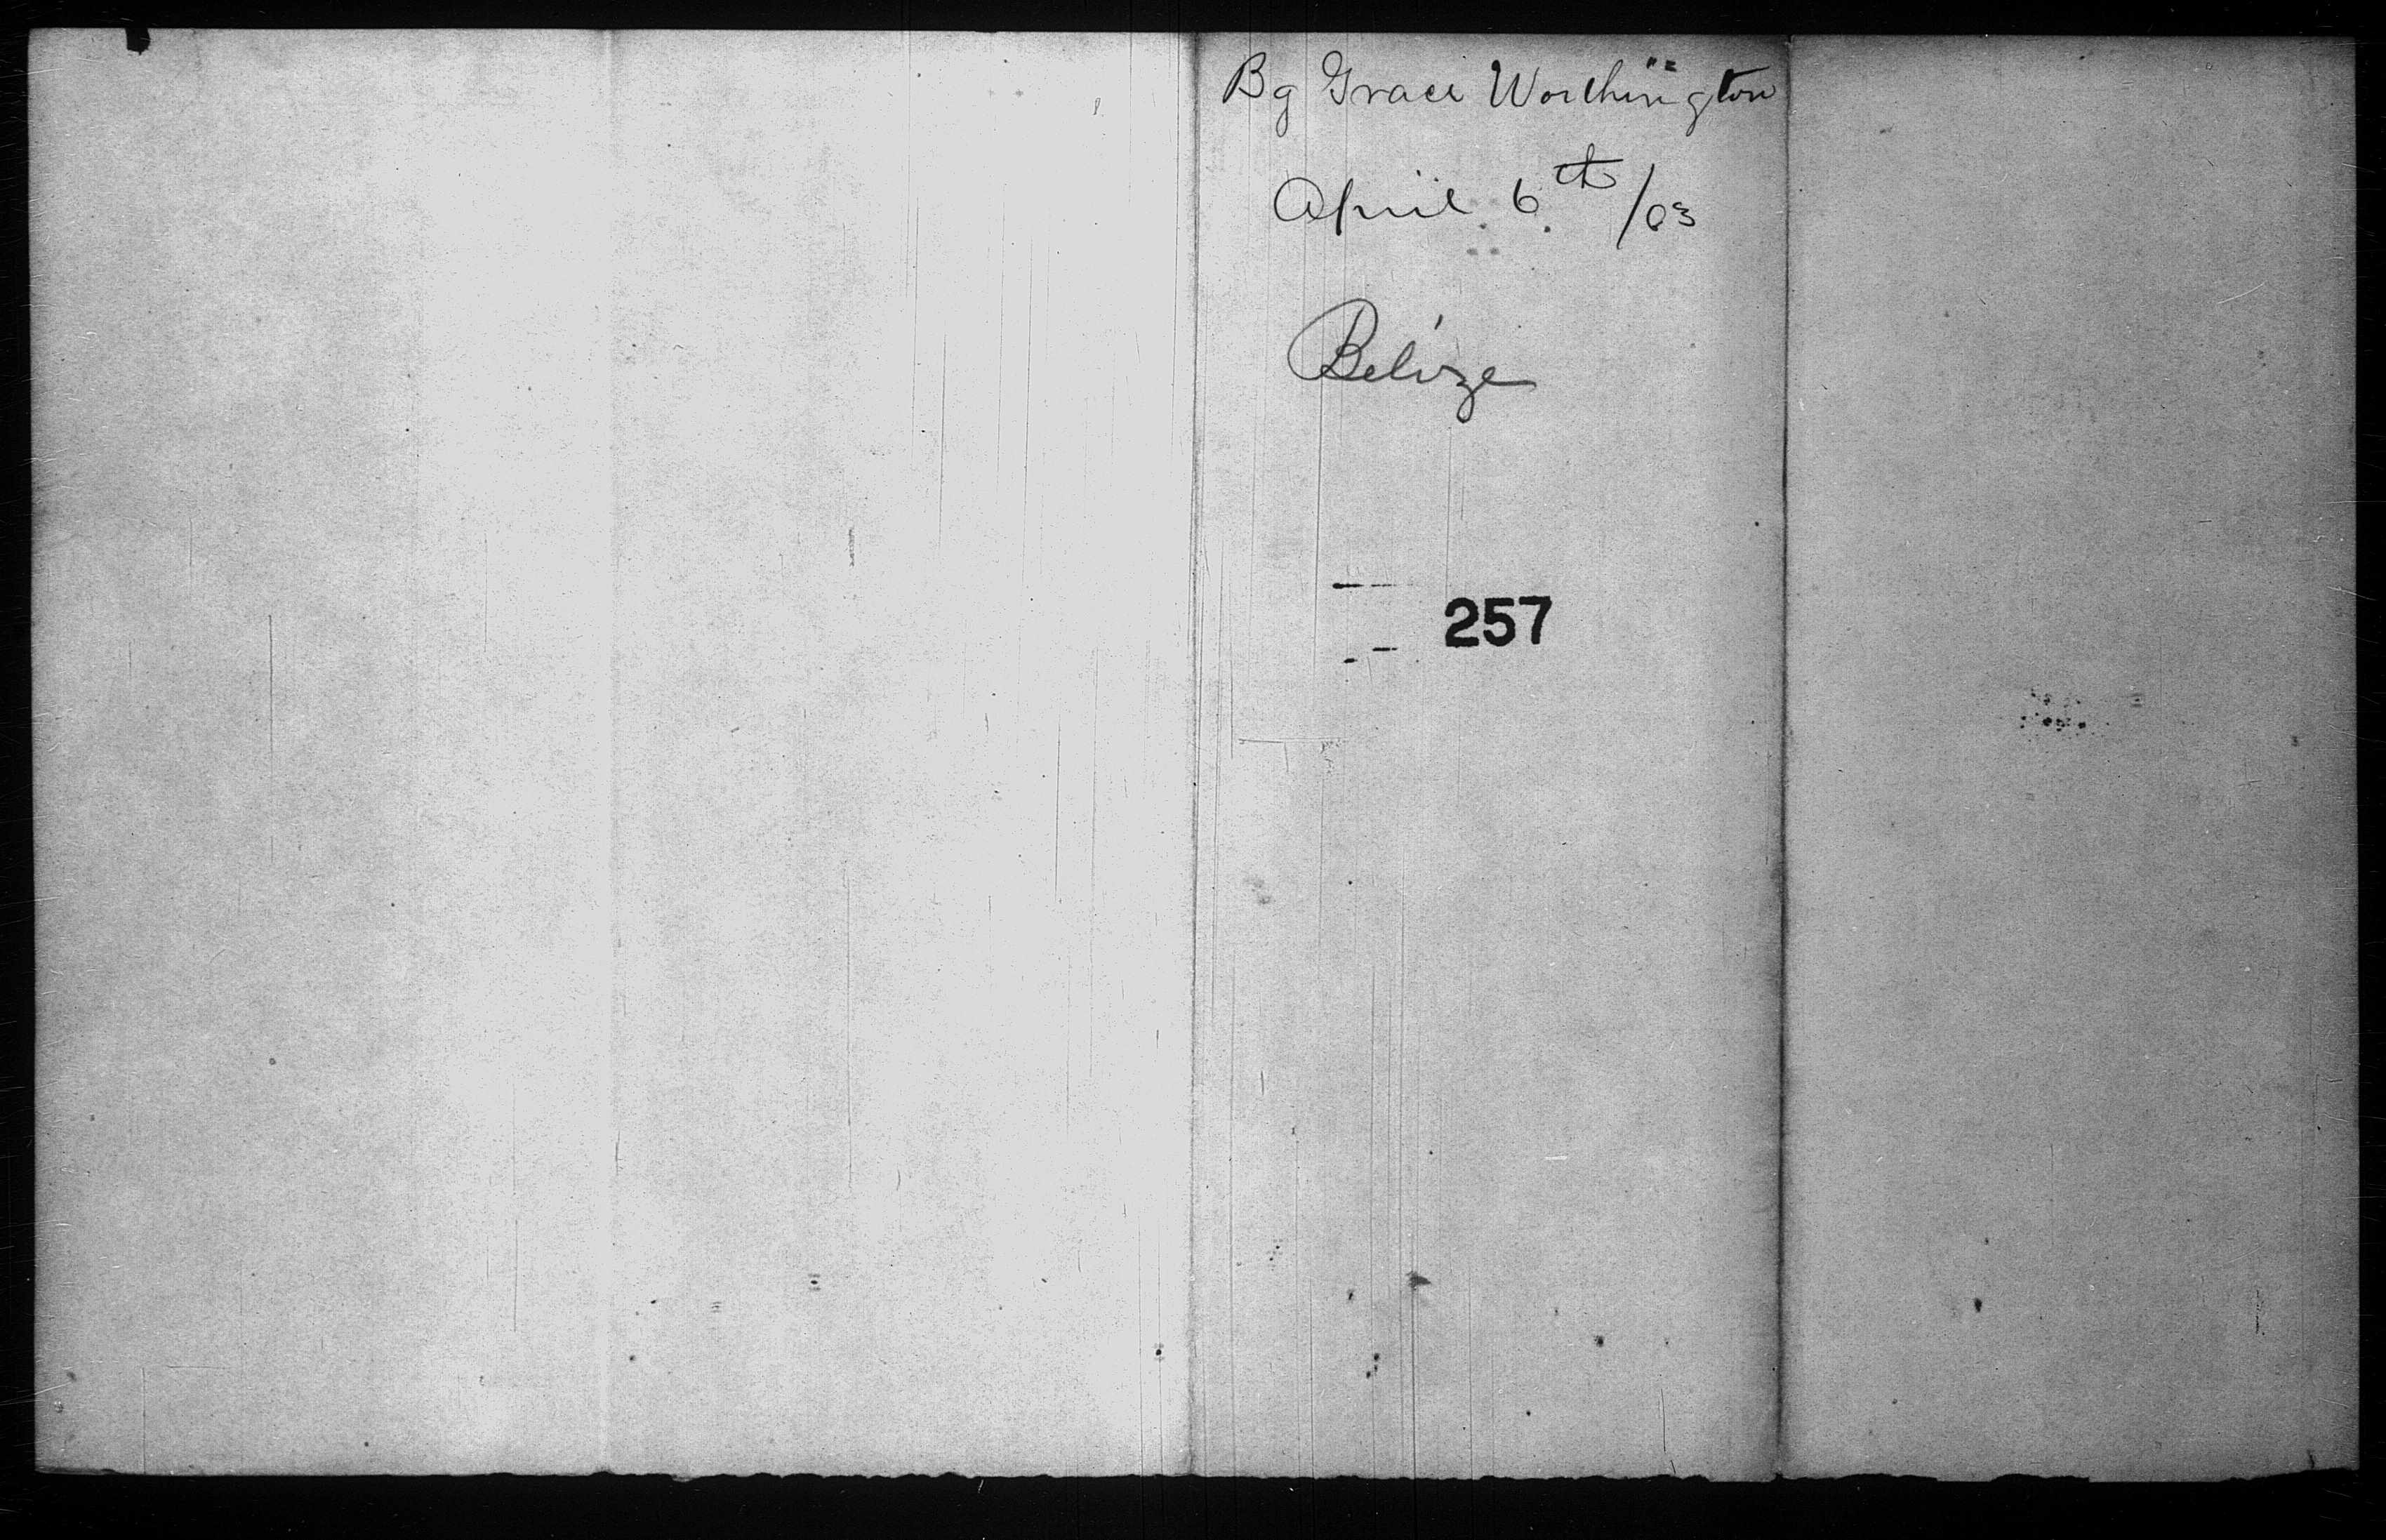 Bg Grace Worthington
April 6th/03
Belize
257